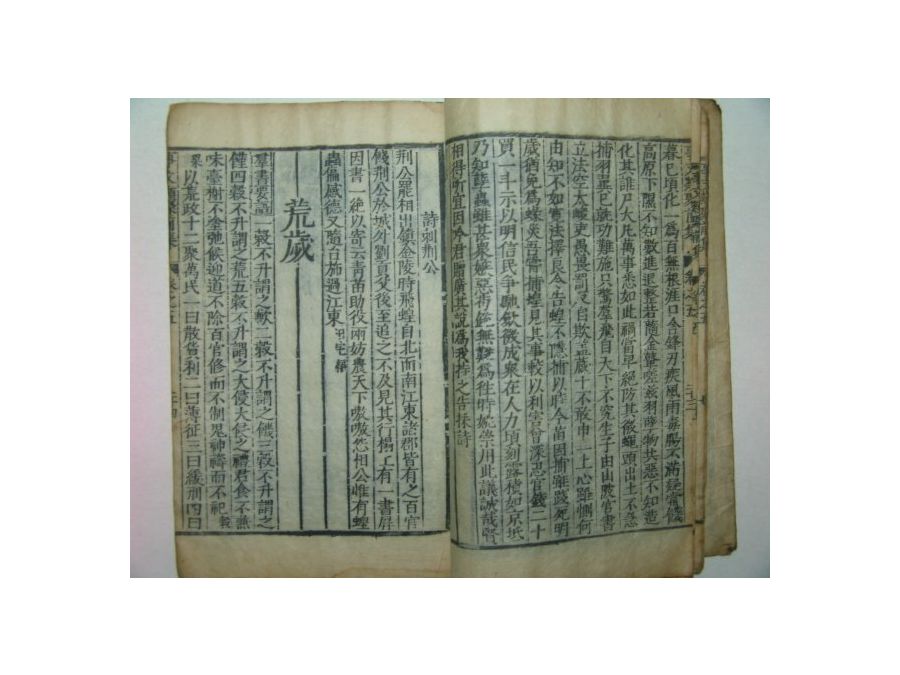 暮已頃化一為百無根涯口含鋒刃疾風雨毒腸不滿疑常饑
高原下隰不知數進退整若隨金鼙嗟茲羽孽物共惡不知造
化其誰尸大凡萬事悉如此禍當早絕防其微蠅頭出土不急
捕羽翼已就功難施只驚羣飛自天下不究生子由由敗官書
立法空太峻吏愚畏罰反自欺盖藏十不敢申一上心雖惻何
由知不如寬法擇良令告蝗不隱捕以時今苗因捕雖踐死明
歲猶免為蝝災吾嘗捕蝗見其事較以利害曾深思官錢二十
買一斗示以明信民爭馳歛微成衆在人力頃刻露積如京坻
乃知孽蟲雖甚衆嫉惡苟銳無難為徃時姚崇用此議誠哉賢
相得所宜因吟君贈廣其說為我持之告採詩
詩刺荆公
荆公罷相出鎮金陵時飛蝗自北而南江東諸郡皆有之百官
餞荆公於城外劉貢父後至追之不及見其行榻上有一書屏
因書一絕以寄云青苗助役兩妨農天下嗷嗷怨相公惟有蝗
蟲偏感德又隨台旆過江東
荒歲
羣書要語 一穀不升謂之歉二穀不升謂之饑三穀不升謂之
饉四穀不升謂之荒五穀不升謂之大侵大侵之禮君食不兼
味臺榭不塗弛候廷道不除百官修而不制鬼神禱而不祀
以荒政十二聚萬民一曰散貨利二曰薄征三曰緩刑四曰